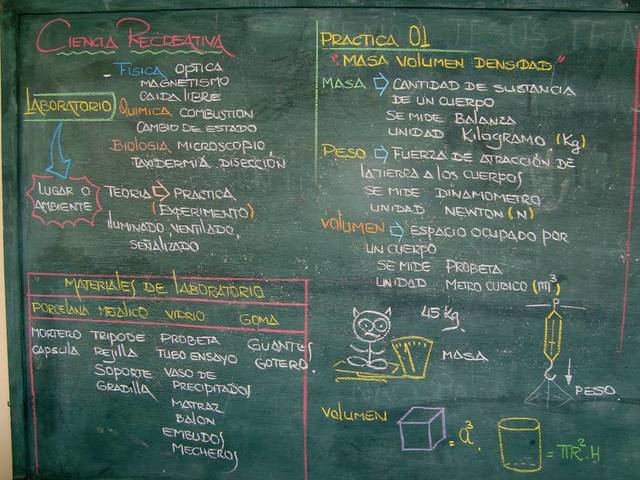 CIENCIA RECREATIVA
FISICA OPTICA
MAGNETISMO
CAIDA LIBRE
LABORATORIO
QUIMICA COMBUSTION
CAMBIO DE ESTADO
BIOLOGIA MICROSCOPIO,
TAXIDERMIA, DISECCIÓN
LUGAR O
AMBIENTE
TEORIA PRACTICA
(EXPERIMENTO)
ILUMINADO, VENTILADO,
SEÑALIZADO
MATERIALES DE LABORATORIO
PORCELANA METALICO VIDRIO GOMA
MORTERO TRIPODE PROBETA GUANTES
CAPSULA REJILLA TUBO ENSAYO GOTERO
SOPORTE VASO DE
GRADILLA PRECIPITADOS
MATRAZ
BALON
EMBUDOS
MECHEROS
PRACTICA 01
"MASA VOLUMEN DENSIDAD"
MASA CANTIDAD DE SUSTANCIA
DE UN CUERPO
SE MIDE BALANZA
UNIDAD KILOGRAMO (Kg)
PESO FUERZA DE ATRACCIÓN DE
LA TIERRA A LOS CUERPOS
SE MIDE DINAMOMETRO
UNIDAD NEWTON (N)
VOLUMEN ESPACIO OCUPADO POR
UN CUERPO
SE MIDE PROBETA
UNIDAD METRO CUBICO (m³)
45 kg.
MASA
P
PESO
VOLUMEN
= a³.
= πR².H